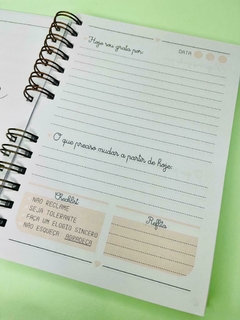 Hoje sou grata por:
DATA
O que preciso mudar a partir de hoje:
Checklist
NÃO RECLAME
SEJA TOLERANTE
FAÇA UM ELOGIO SINCERO
NÃO ESQUEÇA: AGRADEÇA
Reflita